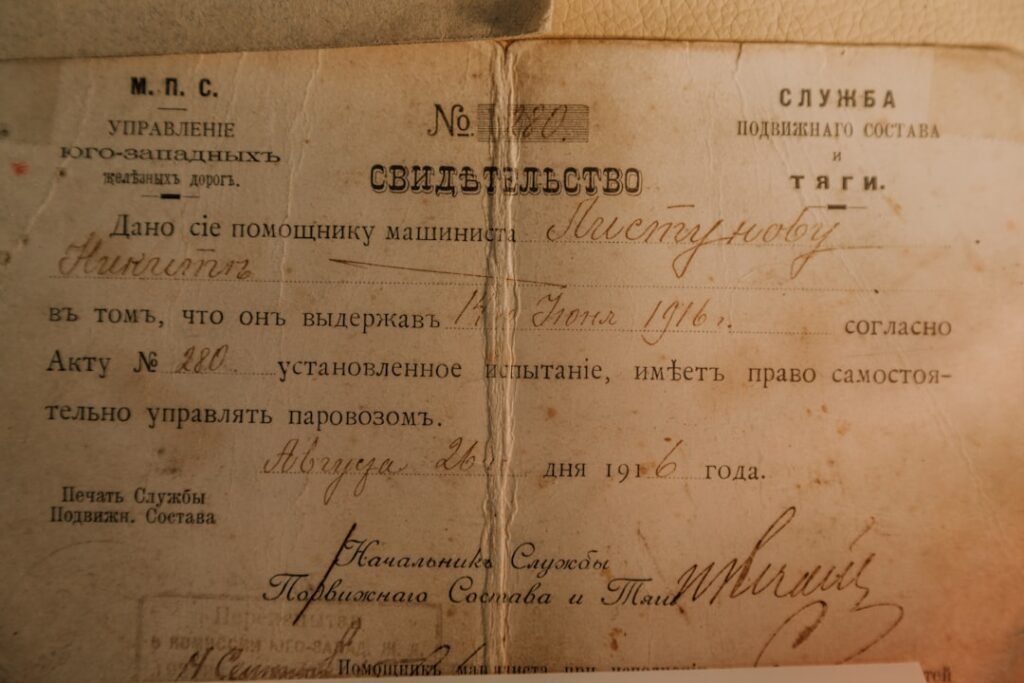 М. П. С.
УПРАВЛЕНІЕ
ЮГО-ЗАПАДНЫХЪ
желѣзныхъ дорогъ.
СЛУЖБА
ПОДВИЖНАГО СОСТАВА
и
ТЯГИ.
№ 280.
СВИДѢТЕЛЬСТВО
Дано сіе помощнику машиниста
Никитѣ
въ томъ, что онъ выдержавъ Іюня 1916 г. согласно
Акту № 280 установленное испытаніе, имѣетъ право самостоя-
тельно управлять паровозомъ.
Августа 26 дня 1916 года.
Печать Службы
Подвижн. Состава
Начальникъ Службы
Подвижнаго Состава и Тяги
ЮГО-ЗАПАД.
Помощникъ машиниста при